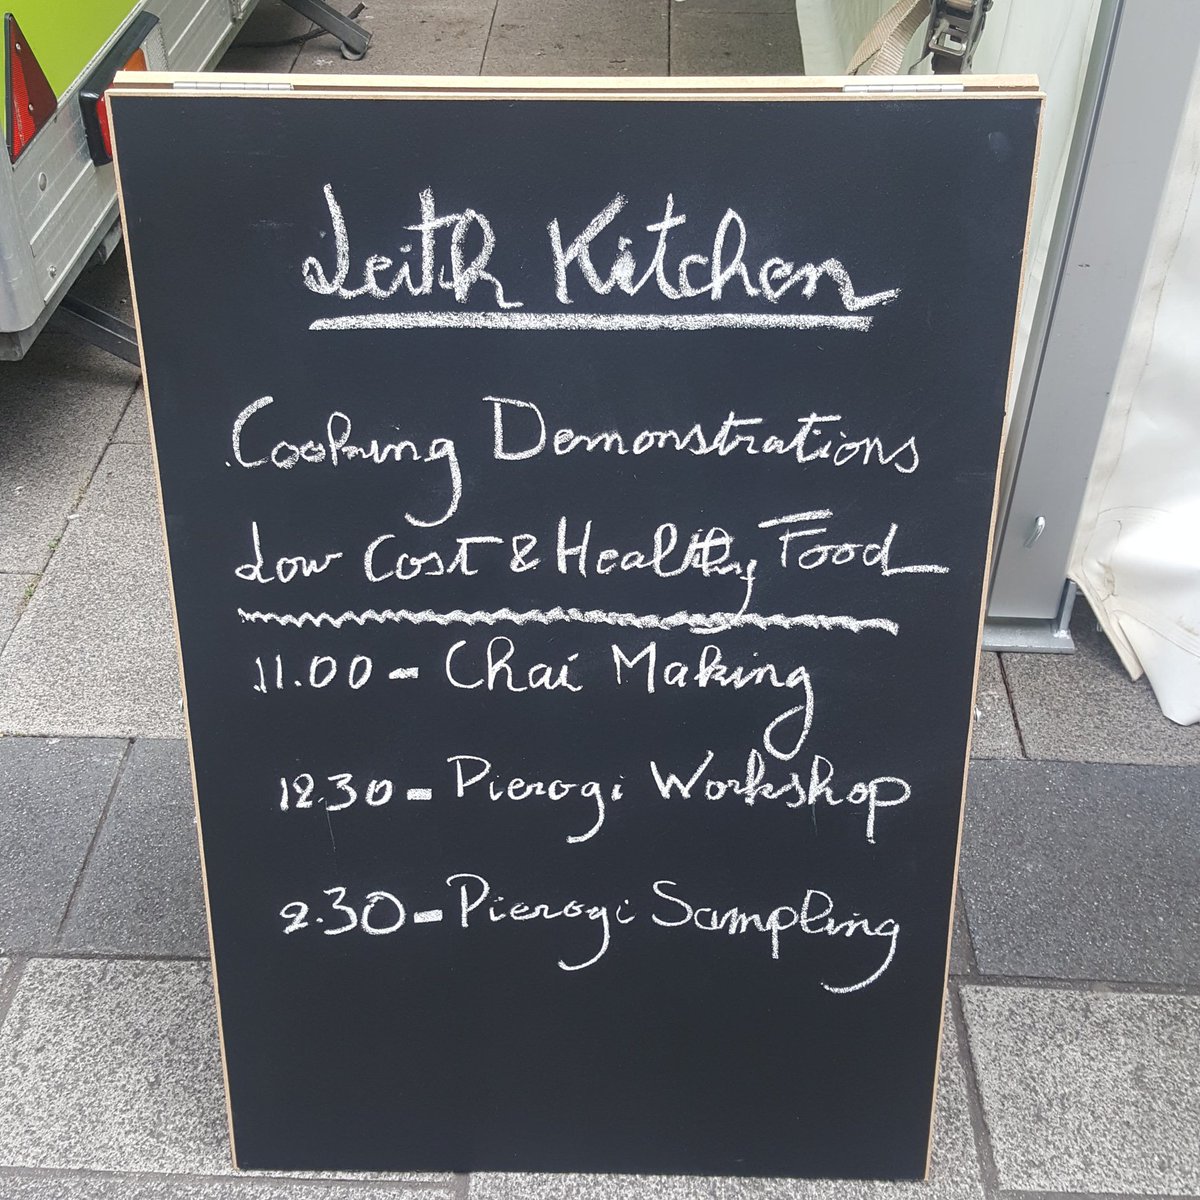 Leith Kitchen
Cooking Demonstrations
Low Cost & Healthy Food
11.00 - Chai Making
12.30 - Pierogi Workshop
2.30 - Pierogi Sampling